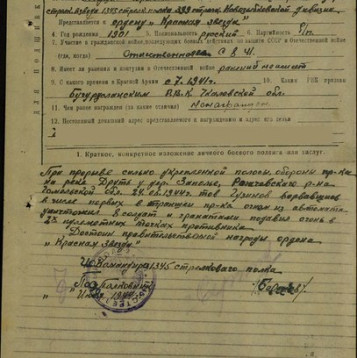 Представляется к ордену „Красная Звезда"
4. Год рождения 1901 5. Национальность русский 6. Партийность б/п
7. Участие в гражданской войне, последующих боевых действиях по защите СССР и Отечественной войне
(где, когда) Отечественной с 8.41.
8. Имеет ли ранения и контузии в Отечественной войне
9. С какого времени в Красной Армии с 7.1941 г. 10. Каким РВК призван
Бугурусланским РВК Чкаловской обл.
11. Чем ранее награжден (за какие отличия)
12. Постоянный домашний адрес представляемого к награждению и адрес его семьи
1. Краткое, конкретное изложение личного боевого подвига или заслуг.
При прорыве сильно укрепленной полосы обороны пр-ка
на реке Друть у дер. Рогачевского р-на
Гомельской обл. 24.06.1944 г. тов. ворвавшись
в числе первых в траншеи пр-ка огнем из автомата
уничтожил 8 солдат и гранатами подавил огонь
пулеметных точек противника.
Достоин правительственной награды ордена
„Красная Звезда".
Командира 1345 стрелкового полка
Подполковник
Июня 1944